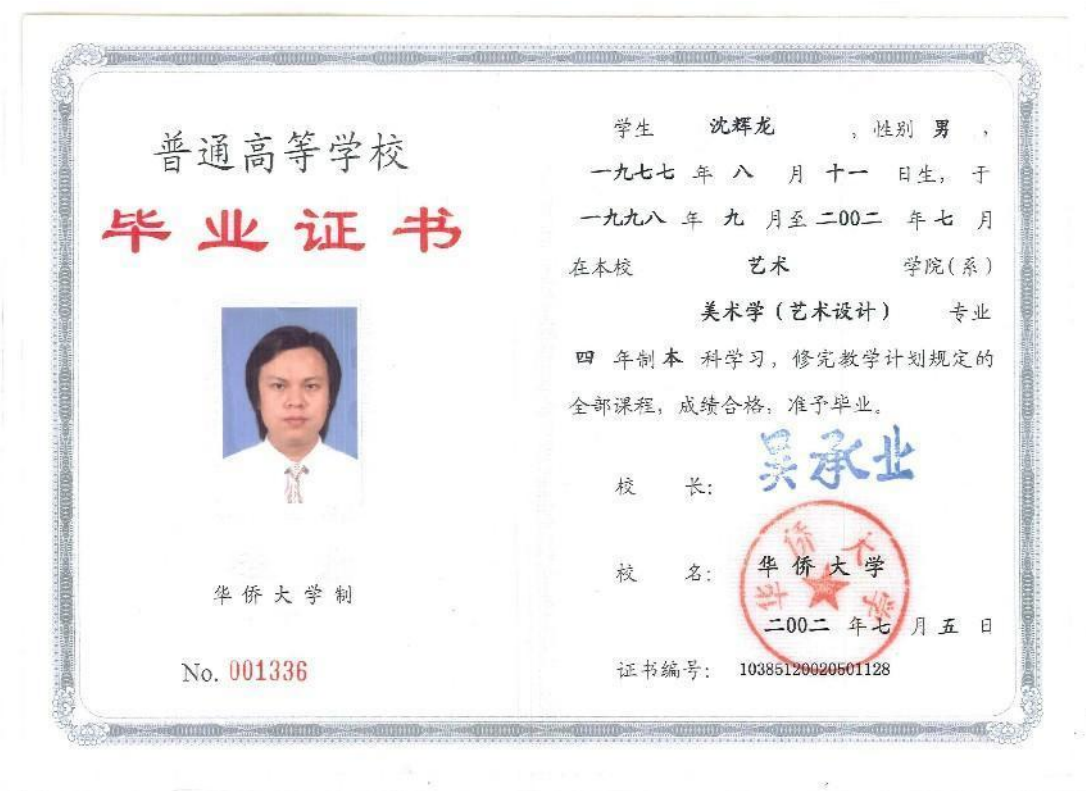 普通高等学校
毕业证书
华侨大学制
No. 001336
学生 沈辉龙 ，性别 男 ，
一九七七 年 八 月 十一 日生，于
一九九八 年 九 月至 二00二 年 七 月
在本校 艺术 学院(系)
美术学（艺术设计） 专业
四 年制 本 科学习，修完教学计划规定的
全部课程，成绩合格，准予毕业。
校 长： 吴承业
华侨大学
校 名： 华侨大学
二00二 年 七 月 五 日
证书编号： 10385120020501128